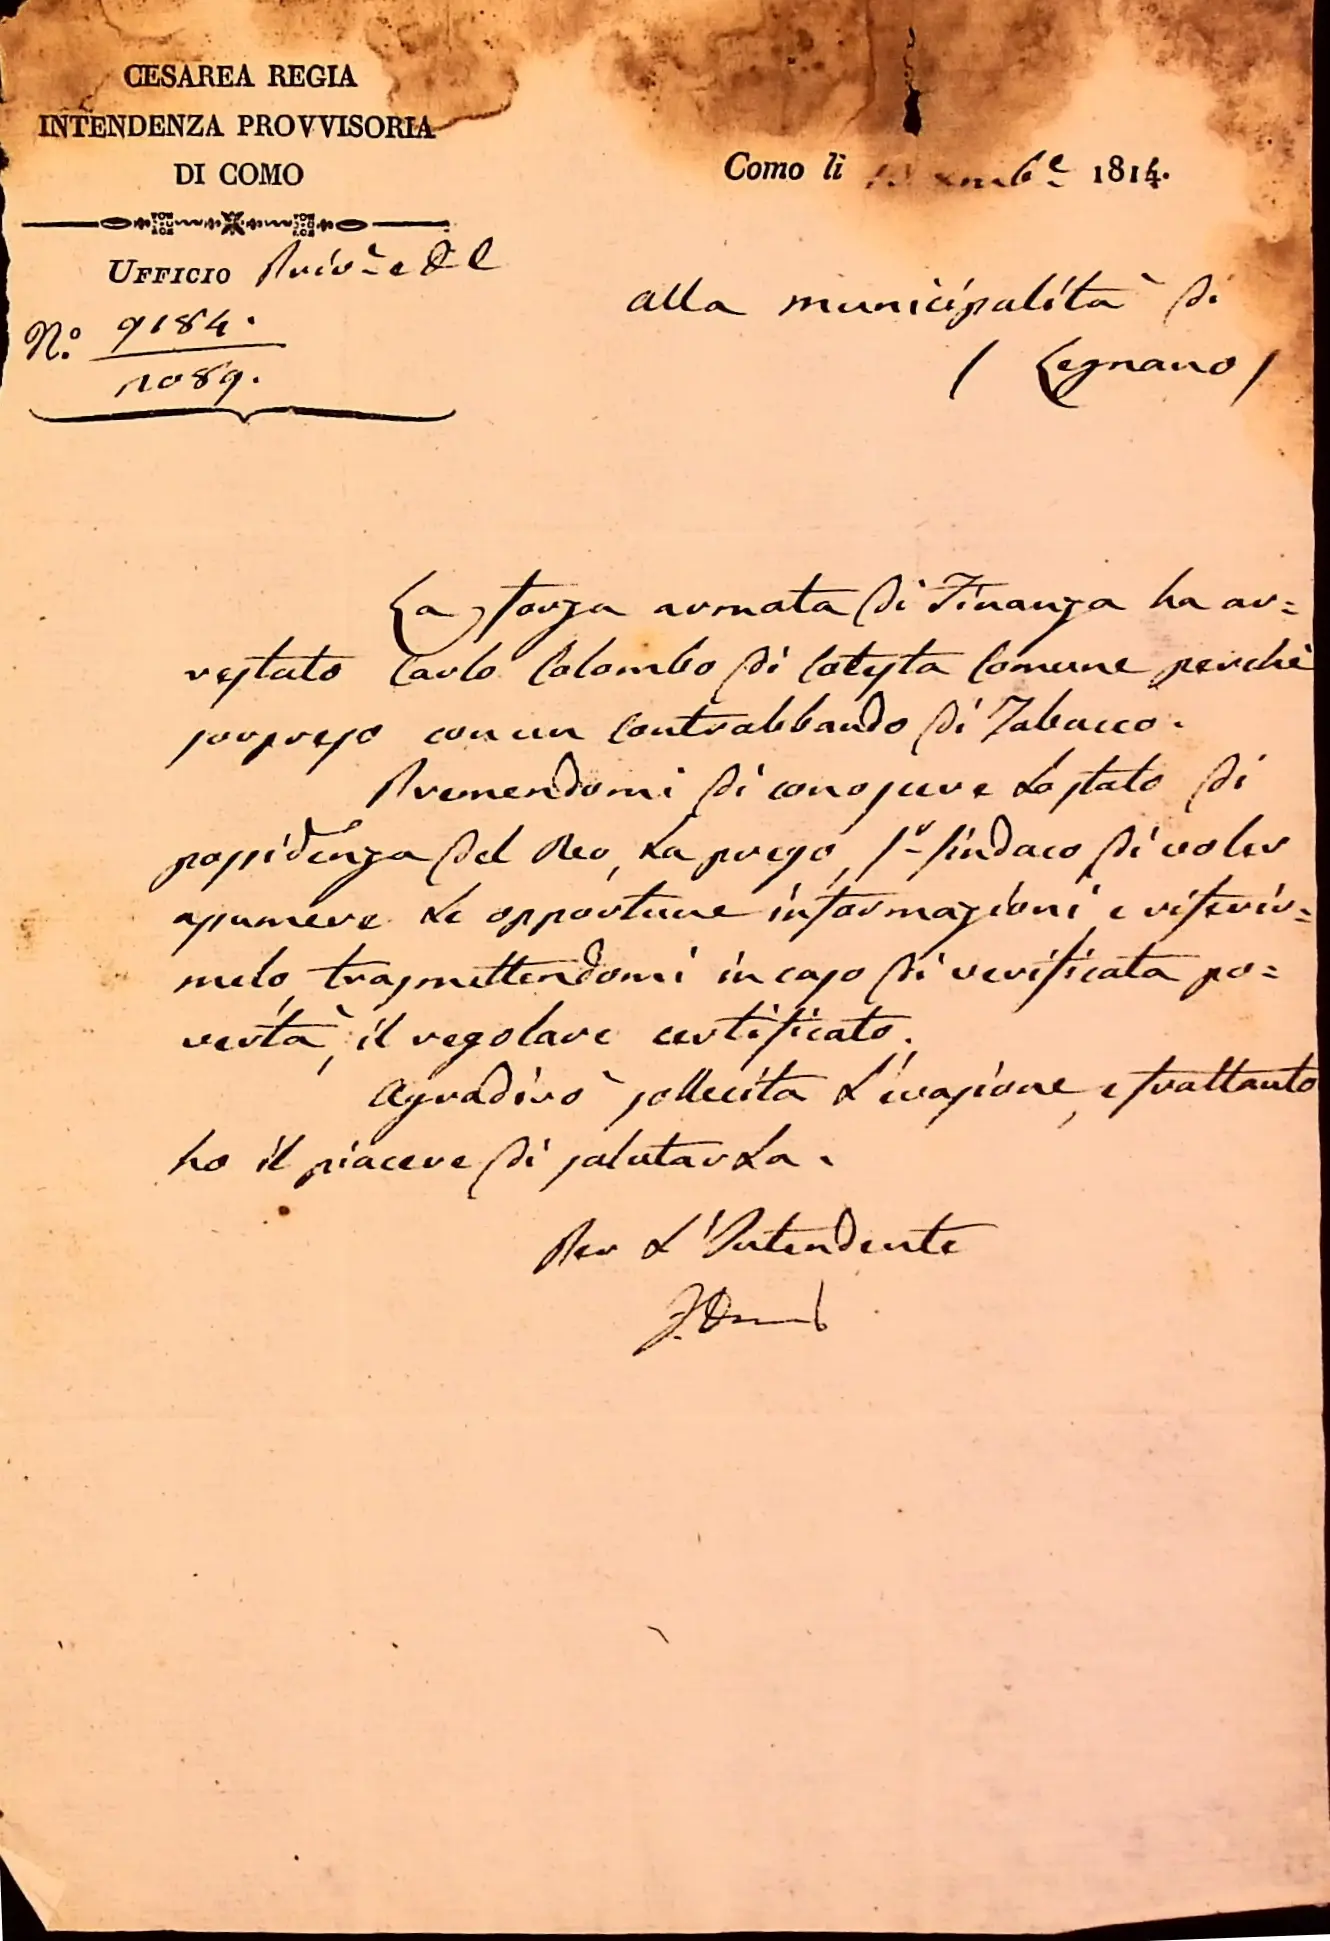 CESAREA REGIA
INTENDENZA PROVVISORIA
DI COMO
Como li xmb.e 1814.
UFFICIO
N.o 9184.
1089.
alla municipalità di
/ Legnano /
La forza armata di Finanza ha ar=
restato Carlo Colombo di Cotesta Comune perchè
sorpreso con un Contrabbando di Tabacco.
Premendomi di conoscere Lo stato di
possidenza del Reo, La prego, Sr. Sindaco di voler
assumere Le opportune informazioni, e riferir=
melo, trasmettendomi in caso di verificata po=
vertà, il regolare certificato.
Agradirò sollecita L'evasione, e frattanto
ho il piacere di salutarLa.
Per L'Intendente